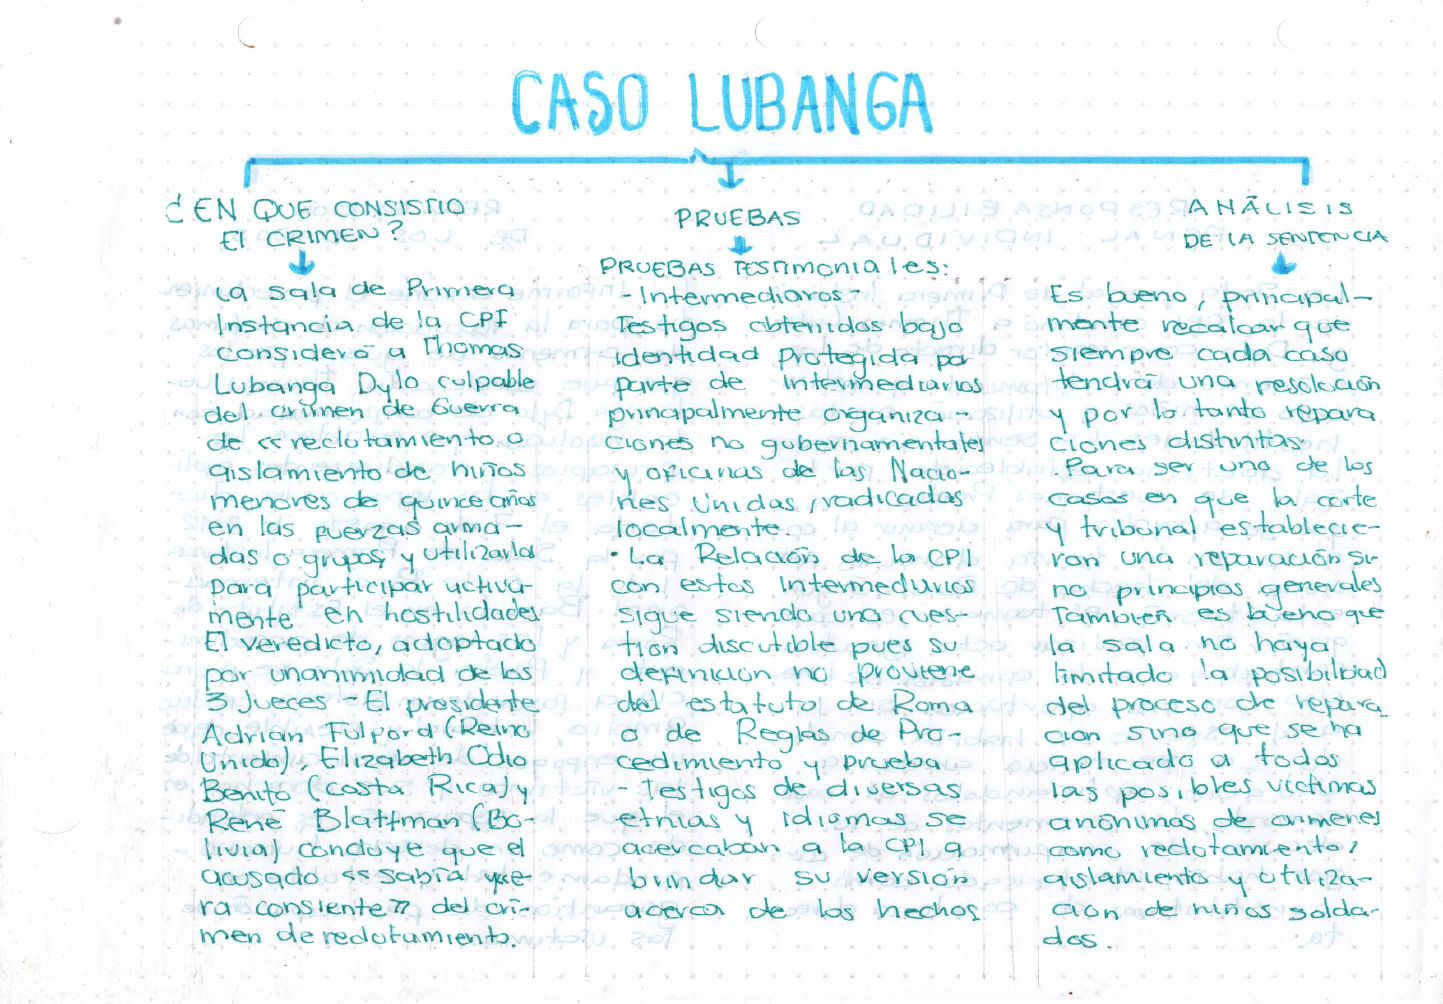 CASO LUBANGA
¿EN QUE CONSISTIO
El CRIMEN?
La sala de Primera
Instancia de la CPI
consideró a Thomas
Lubanga Dylo culpable
del crimen de Guerra
de << reclutamiento o
aislamiento de niños
menores de quince años
en las fuerzas arma-
das o grupos y utilizarlos
para participar activa-
mente en hostilidades
El veredicto, adoptado
por unanimidad de los
3 Jueces - El presidente
Adrian Fulford (Reino
Unido), Elizabeth Odio
Benito (costa Rica) y
René Blattman (Bo-
livia) concluye que el
acusado << sabía y e-
ra consiente >> del cri-
men de reclutamiento.
PRUEBAS
PRUEBAS TESTIMONIALES:
- Intermediaros -
Testigos obtenidos bajo
identidad protegida por
parte de intermediarios
principalmente organiza-
ciones no gubernamentales
y oficinas de las Nacio-
nes Unidas, radicadas
localmente.
• La Relación de la CPI
con estos Intermediarios
sigue siendo una cues-
tion discutible pues su
definicion no proviene
del estatuto de Roma
o de Reglas de Pro-
cedimiento y prueba
- Testigos de diversas
etnias y idiomas se
acercaban a la CPI a
brindar su versión
acerca de los hechos
ANÁLISIS
DE LA SENTENCIA
Es bueno, principal-
mente recalcar que
siempre cada caso
tendrá una resolución
y por lo tanto repara
ciones distintas.
Para ser uno de los
casos en que la corte
y tribunal establecie-
ron una reparación si-
no principios generales
También es bueno que
la sala no haya
limitado la posibilidad
del proceso de repara_
cion sino que se ha
aplicado a todos
las posibles victimas
anónimas de crimenes
como reclutamiento,
aislamiento y utiliza-
cion de niños solda-
dos.